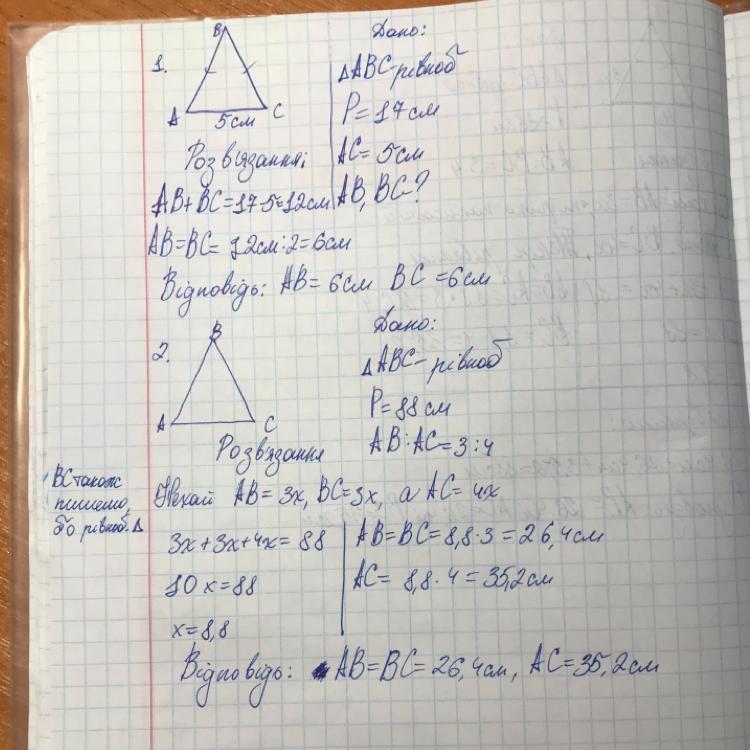 1.
B
A
C
5см
Дано:
△ABC-рівноб
P=17см
AC=5см
AB, BC-?
Розв'язання:
AB+BC=17-5=12см
AB=BC= 12см:2=6см
Відповідь: AB=6см BC=6см
2.
B
A
C
Дано:
△ABC-рівноб
P=88см
AB:AC=3:4
Розв'язання
BC також
пишемо,
бо рівноб.△
Нехай AB=3x, BC=3x, а AC=4x
3x+3x+4x=88
10x=88
x=8,8
AB=BC=8,8·3=26,4см
AC= 8,8·4=35,2см
Відповідь: AB=BC=26,4см, AC=35,2см